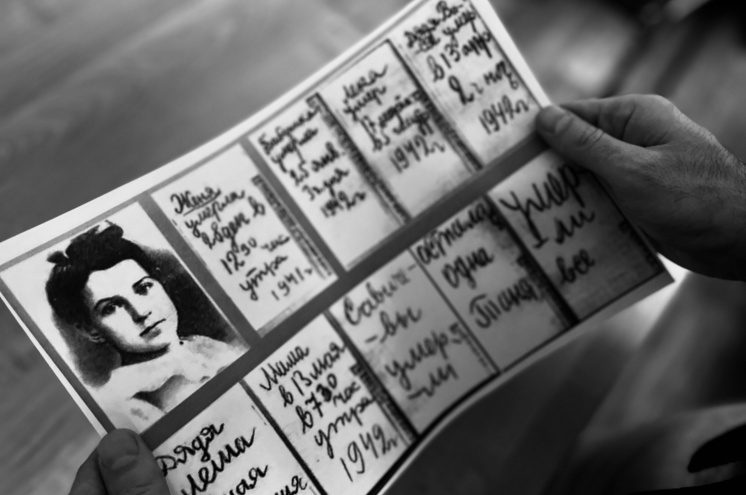 Женя
умерла
28 дек в
12 30 час
утра
1941 г
Бабушка
умерла
25 янв
3ч дня
1942 г
Лека
умер
в 5 час
1942 г
Дядя Ва-
умер
в 13 апр
2 ч ноч
1942 г
Дядя
Леша
мая
Мама
в 13 мая
в 7 30
час
утра
1942 г
Савич-
-вы
умер-
-ли
остала
одна
Таня
Умер
ли
все